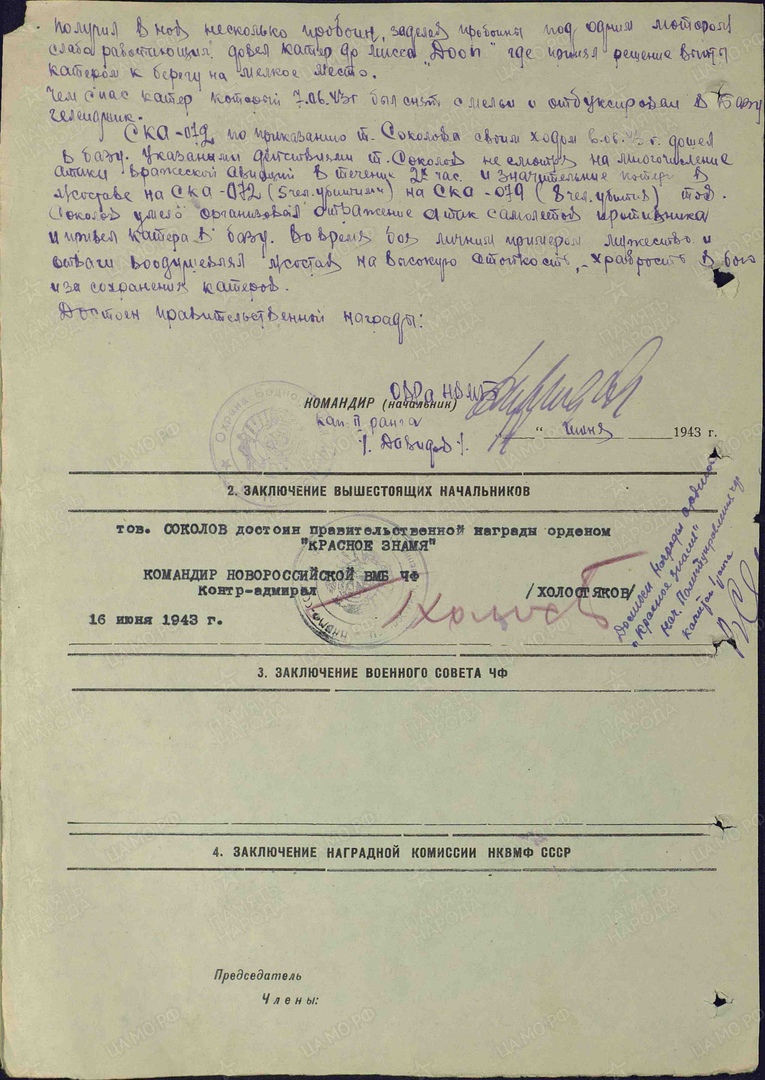 получил в нов несколько пробоин, заделав пробоины под одним мотором
слабо работающим довел катер до мысса "Дооп" где принял решение выйти
катером к берегу на мелкое место.
Чем спас катер который 7.06.43г был снят с мели и отбуксирован в базу
геленджик.
СКА-072 по приказанию т. Соколова своим ходом 6.06.43 г. дошел
в базу. Указаными действиями т. Соколов не смотря на многочисление
атаки вражеской авиации в течении 2х час. и значительные потери в
л/составе на СКА-072 (5 чел. убитыми) на СКА-079 (8 чел. убитых) тов.
Соколов умело организовал отражение атак самолетов противника
и привел катера в базу. Во время боя личным примером мужество и
отваги воодушевлял л/состав на высокую стойкость, храбрость в бою
и за сохранения катеров.
Достоен правительственной награды:
ОВРа НВМБ
КОМАНДИР (начальник)
кап. II ранга
/. Давидов /.
" июня 1943 г.
2. ЗАКЛЮЧЕНИЕ ВЫШЕСТОЯЩИХ НАЧАЛЬНИКОВ
тов. СОКОЛОВ достоин правительственной награды орденом
"КРАСНОЕ ЗНАМЯ"
КОМАНДИР НОВОРОССИЙСКОЙ ВМБ ЧФ
контр-адмирал /ХОЛОСТЯКОВ/
16 июня 1943 г.
Достоин награды орденом
"Красное знамя"
Нач. Политуправления ЧФ
3. ЗАКЛЮЧЕНИЕ ВОЕННОГО СОВЕТА ЧФ
4. ЗАКЛЮЧЕНИЕ НАГРАДНОЙ КОМИССИИ НКВМФ СССР
Председатель
Члены: